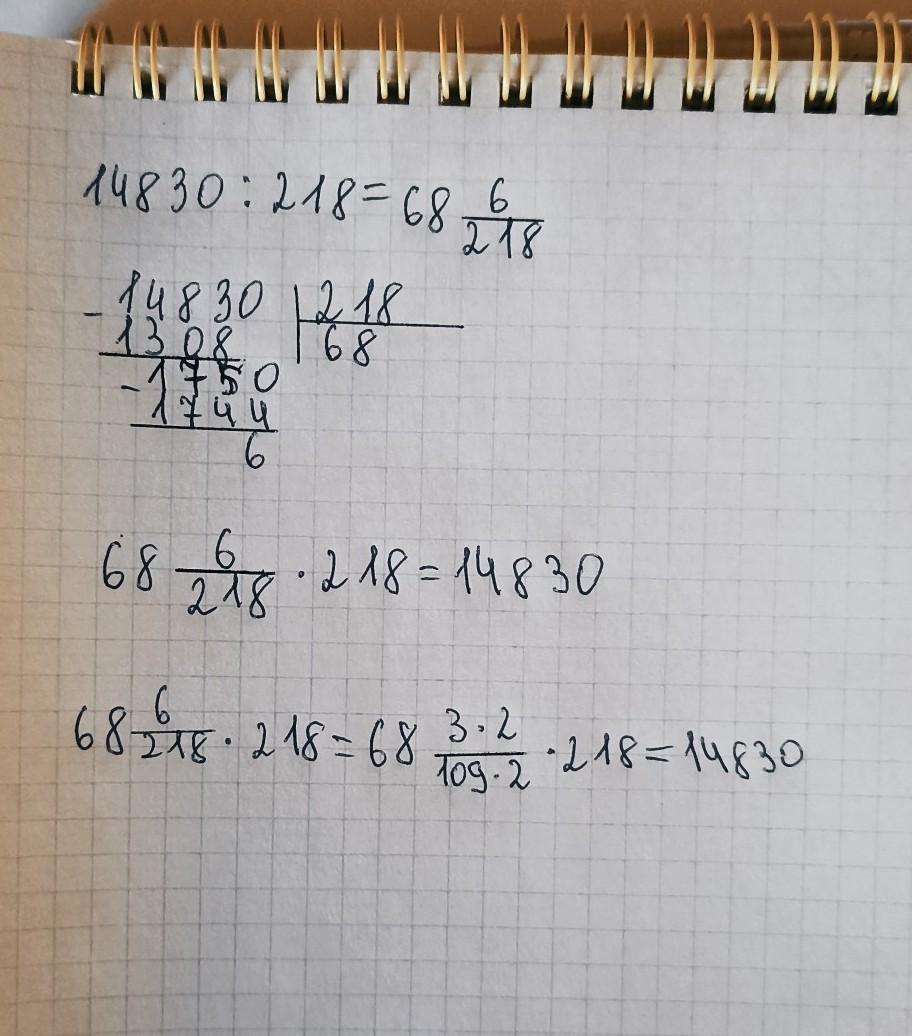 14830 : 218 = 68 6/218
- 14830 | 218
1308 | 68
- 1750
1744
6
68 6/218 · 218 = 14830
68 6/218 · 218 = 68 3·2/109·2 · 218 = 14830